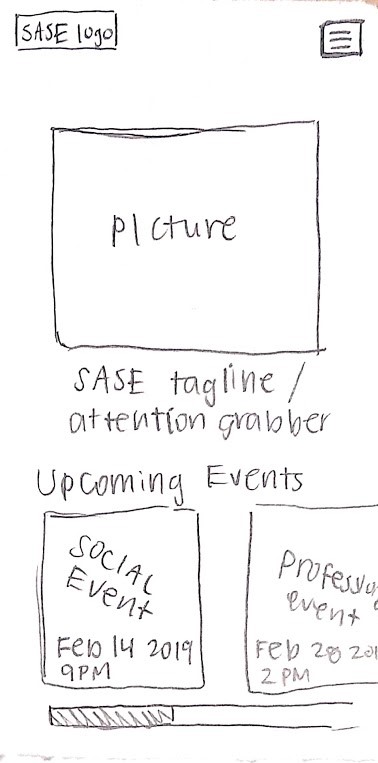 SASE logo
picture
SASE tagline /
attention grabber
Upcoming Events
Social
Event
Feb 14 2019
9PM
Professio
event
Feb 28 201
2 PM